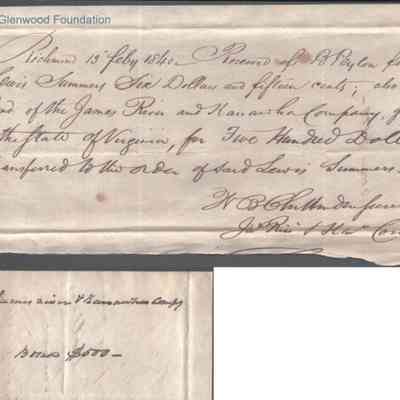 Glenwood Foundation
Richmond 13 Feby 1840. Received of B Peyton for
Lewis Summers Six Dollars and fifteen cents; also
of the James River and Kanawha Company, g
the State of Virginia, for Two Hundred Doll
transferred to the order of said Lewis Summers.
W B Chittenden
Jas Riv & Kaw Com
James River & Kanawha Compy
Bond $500 —